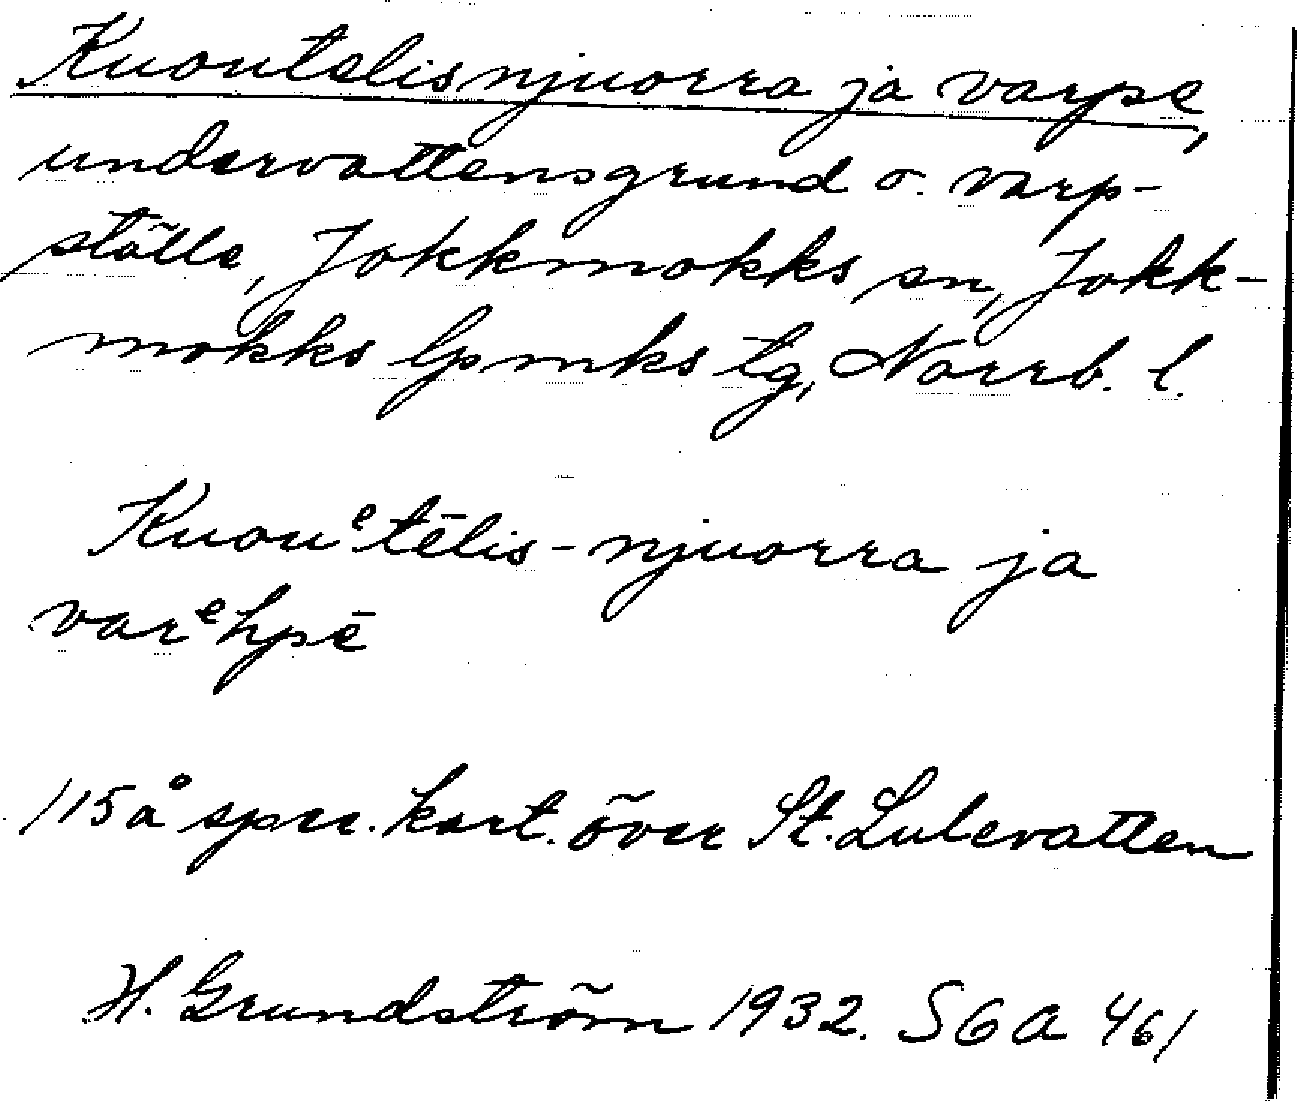 Kuoutelisnjuorra ja varpe,
undervattensgrund o. varp-
ställe, Jokkmokks sn, Jokk-
mokks lpmks tg, Norrb. l.
Kuouᵉtēlis-njuorra ja
varᵉhpē
115 å spec. kart. över St. Lulevatten
H. Grundström 1932. SGA 461